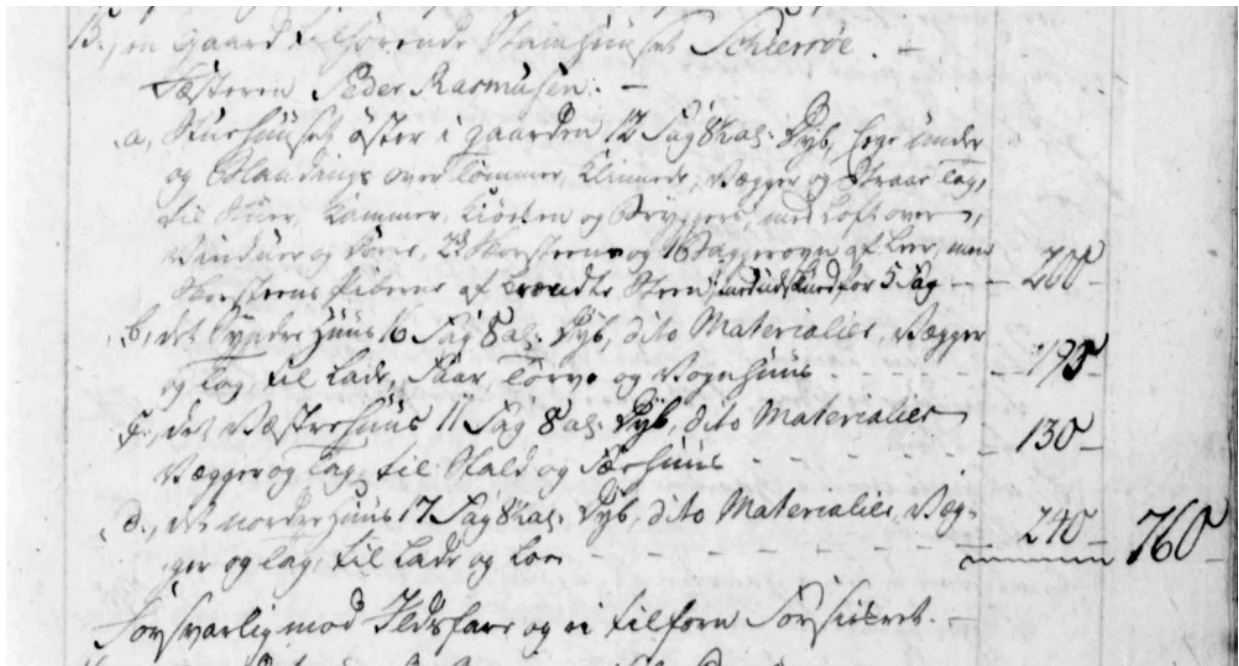 13., en Gaard tilhörende Stamhuuset Schierröe. -
Fæsteren Peder Rasmusen. -
a, Stuehuuset öster i gaarden 12 Fag 8¾ al: Dyb, Eege under
og Blandings over Tömmer, Klinede, Vægger og Straae Tag,
til Stuer, Kammer, Kiöcken og Brÿggers, med Loft over,
Vinduer og Dörre, 2 Skorsteene og 1 Baggerovn af Leer, men
Skorsteens Piberne af brændte Steen, med udskud for 5 Fag - - 200 -
b, det Syndre Huus 16 Fag 8 al: Dyb, dito Materialier, Vægger
og Tag, til Lade, Faar, Törve og Vognhuus - - - - 195
c., det Vestre Huus 11 Fag 8 al: Dyb, dito Materialier
Vægger og Tag, til Stald og Færhuus - - - - 130 -
d., det nordre Huus 17 Fag 8¾ al: Dyb, dito Materialier, Væg-
ger og Tag, til Lade og Loe - - - - 240 - 760 -
Forsvarlig mod Ildsfare og ei tilforn Forsikret. -